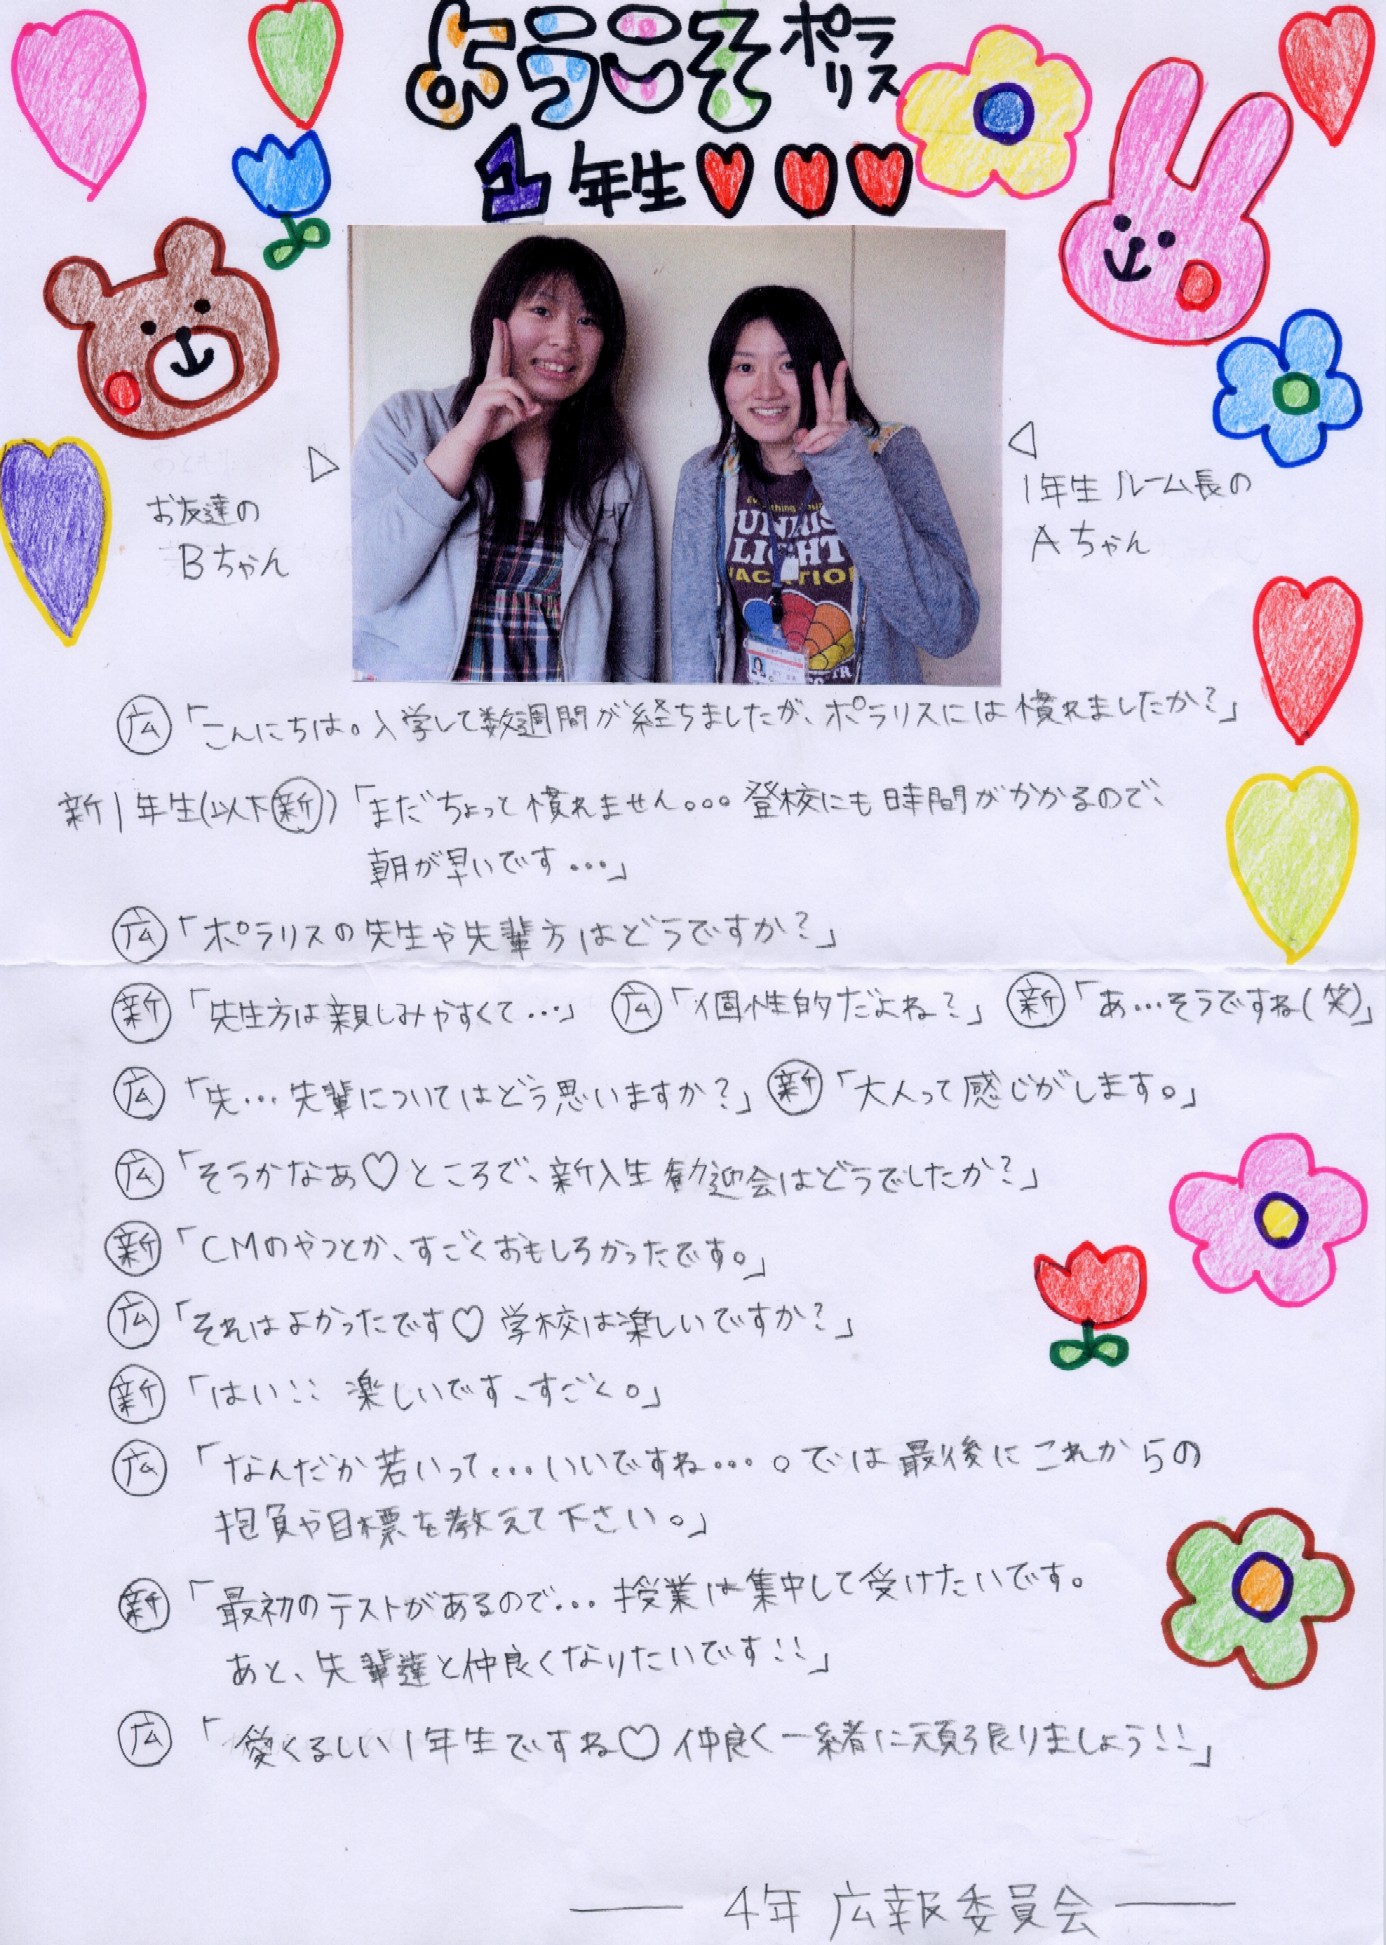 ようこそ ポラリス
1年生♥♥♥
お友達の
Bちゃん
1年生ルーム長の
Aちゃん
LIGHT
VACATION
広「こんにちは。入学して数週間が経ちましたが、ポラリスには慣れましたか?」
新1年生(以下新)「まだちょっと慣れません。。。登校にも時間がかかるので、
朝が早いです...」
広「ポラリスの先生や先輩方はどうですか?」
新「先生方は親しみやすくて...」 広「個性的だよね?」 新「あ...そうですね(笑)」
広「先...先輩についてはどう思いますか?」 新「大人って感じがします。」
広「そうかなぁ♡ところで、新入生歓迎会はどうでしたか?」
新「CMのやつとか、すごくおもしろかったです。」
広「それはよかったです♡学校は楽しいですか?」
新「はい!!楽しいです、すごく。」
広「なんだか若いって...いいですね...。では最後にこれからの
抱負や目標を教えて下さい。」
新「最初のテストがあるので...授業は集中して受けたいです。
あと、先輩達と仲良くなりたいです!!」
広「愛くるしい1年生ですね♡仲良く一緒に頑張りましょう!!」
― 4年 広報委員会 ―